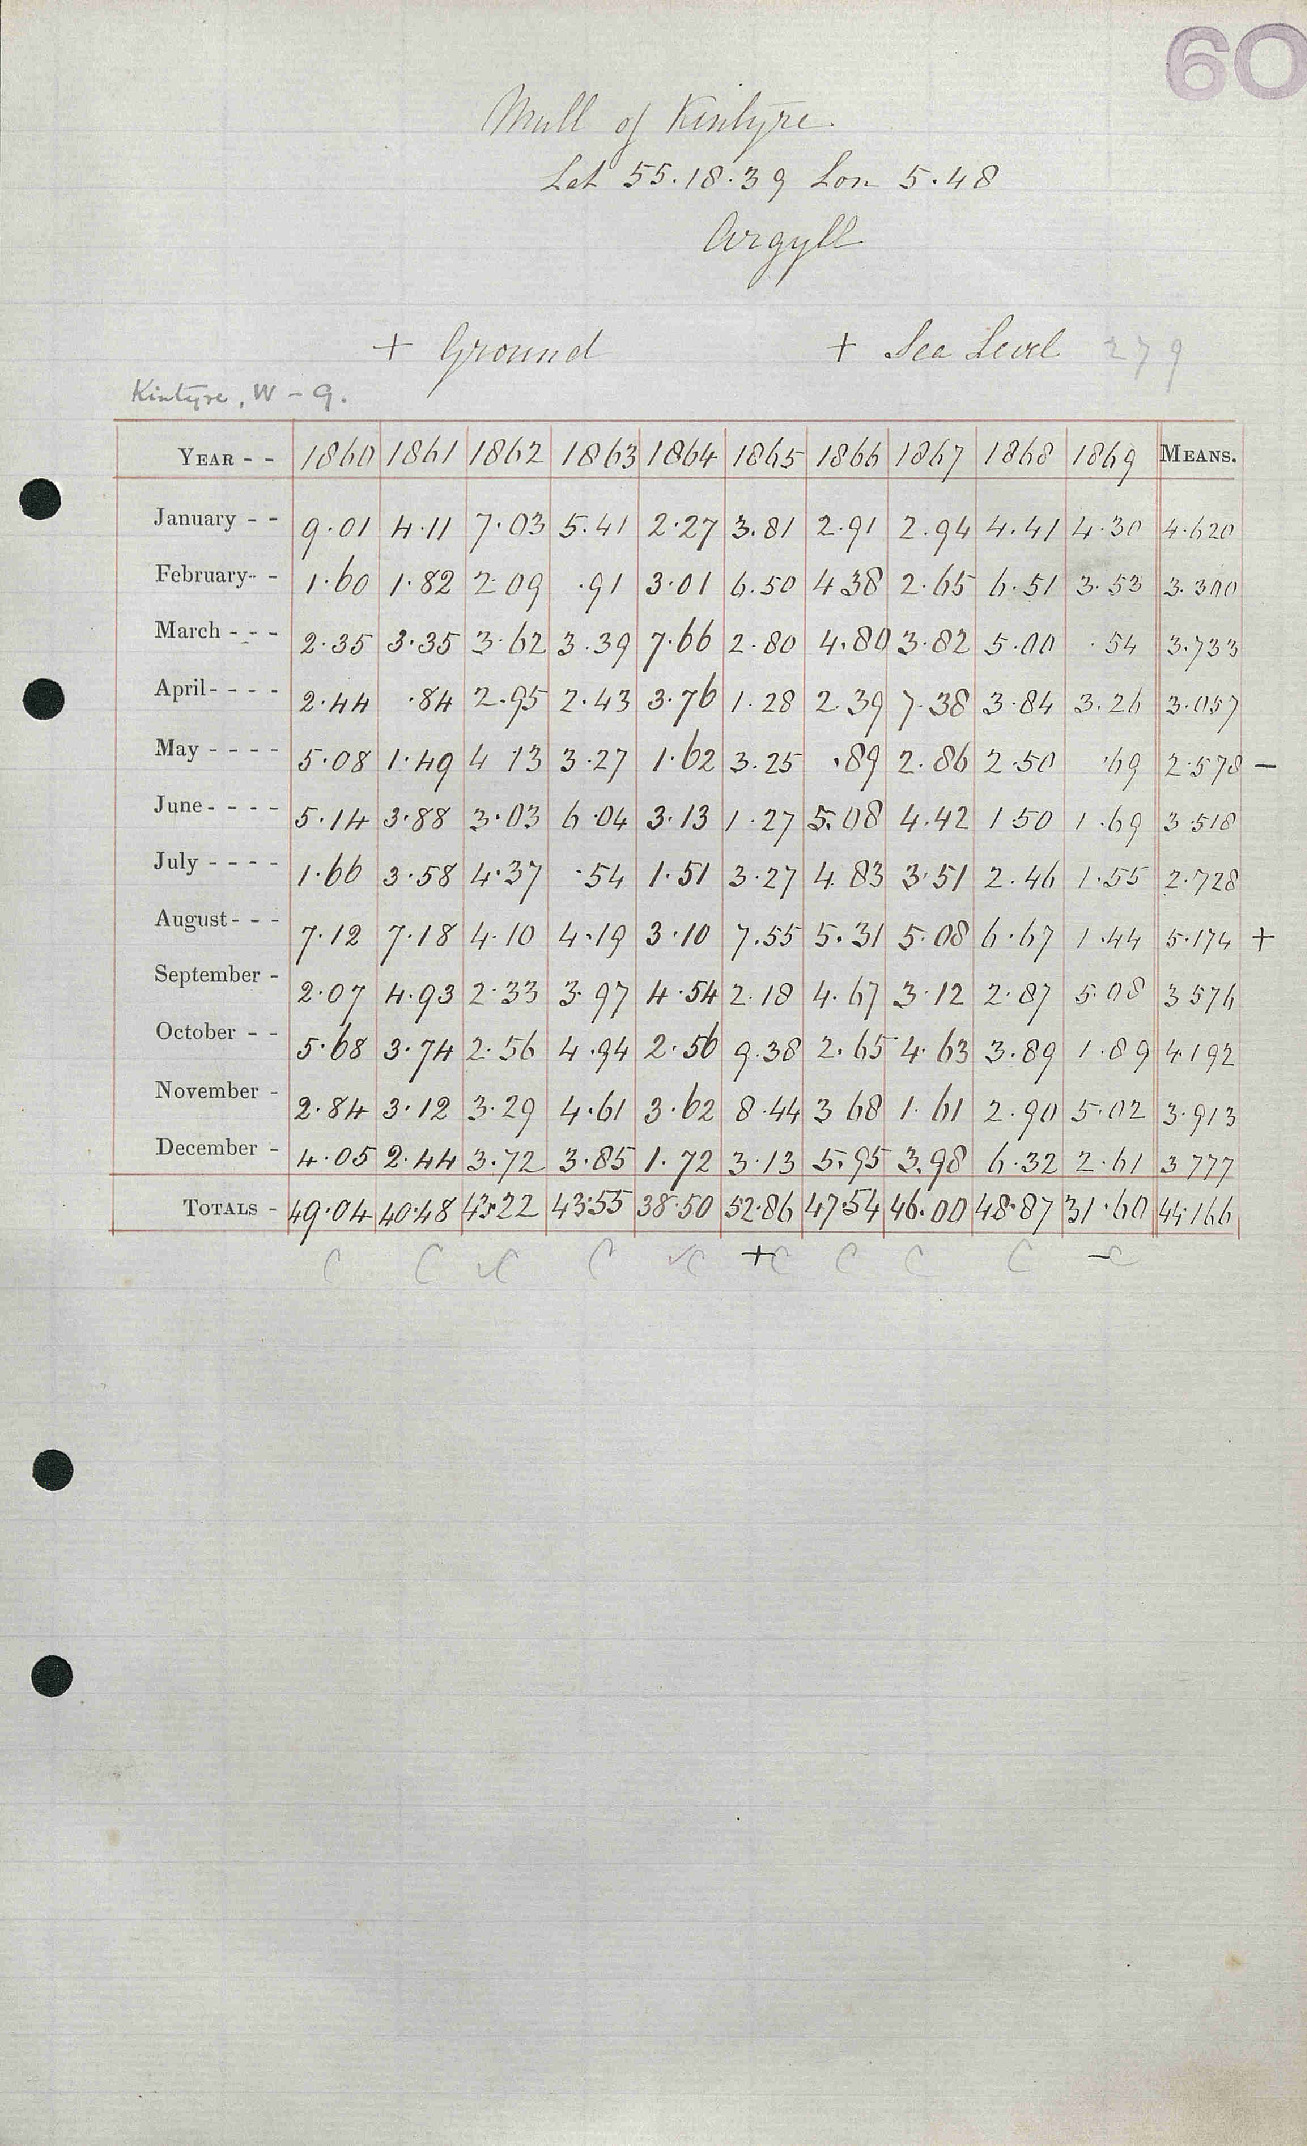 60
Mull of Kintyre
Lat 55.18.39 Lon 5.48
Argyll
+ Ground + Sea Level 279
Kintyre, W - 9.
YEAR - - 1860 1861 1862 1863 1864 1865 1866 1867 1868 1869 MEANS.
January - - 9.01 4.11 7.03 5.41 2.27 3.81 2.91 2.94 4.41 4.30 4.620
February - - 1.60 1.82 2.09 .91 3.01 6.50 4.38 2.65 6.51 3.53 3.300
March - - - 2.35 3.35 3.62 3.39 7.66 2.80 4.80 3.82 5.00 .54 3.733
April - - - - 2.44 .84 2.95 2.43 3.76 1.28 2.39 7.38 3.84 3.26 3.057
May - - - - 5.08 1.49 4.13 3.27 1.62 3.25 .89 2.86 2.50 .69 2.578 -
June - - - - 5.14 3.88 3.03 6.04 3.13 1.27 5.08 4.42 1.50 1.69 3.518
July - - - - 1.66 3.58 4.37 .54 1.51 3.27 4.83 3.51 2.46 1.55 2.728
August - - - 7.12 7.18 4.10 4.19 3.10 7.55 5.31 5.08 6.67 1.44 5.174 +
September - 2.07 4.93 2.33 3.97 4.54 2.18 4.67 3.12 2.87 5.08 3.576
October - - 5.68 3.74 2.56 4.94 2.56 9.38 2.65 4.63 3.89 1.89 4.192
November - 2.84 3.12 3.29 4.61 3.62 8.44 3.68 1.61 2.90 5.02 3.913
December - 4.05 2.44 3.72 3.85 1.72 3.13 5.95 3.98 6.32 2.61 3.777
TOTALS - 49.04 40.48 43.22 43.55 38.50 52.86 47.54 46.00 48.87 31.60 44.166
C C ✓C C ✓C +C C C C -C